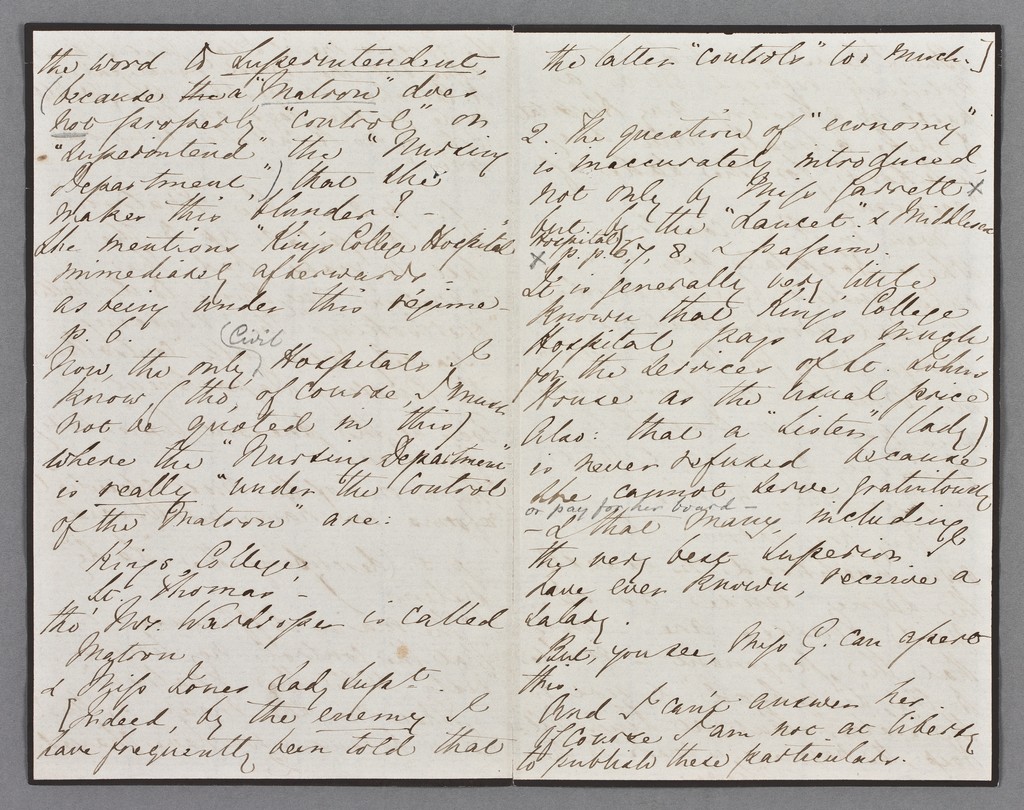 the word to Superintendent,
(because the a "Matron" does
not properly "control" or
"Superintend" the "Nursing
Department",) that she
makes this blunder? -
She mentions "King's College Hospital"
immediately afterwards
as being under this régime -
p. 6.
(Civil
Now, the only Hospitals I
know, (tho', of course, I must
not be quoted in this)
where the "Nursing Department"
is really "under the control
of the Matron" are:
King's College,
St. Thomas', -
tho' Mrs. Wardroper is called
Matron
& Miss Jones Lady Supt.
[Indeed, by the enemy I
have frequently been told that
the latter "controls" too much.]
2. The question of "economy"
is inaccurately introduced,
not only by Miss Garrett x
but by the "Lancet" & Middlesex
Hospital
x p. p. 67, 8, & passim.
It is generally very little
known that King's College
Hospital pays as much
for the services of St. John's
House as the usual price
Also: that a "Sister", (lady)
is never refused because
she cannot serve gratuitously
or pay for her board -
- & that many, including
the very best Superior I
have ever known, receive a
salary.
But, you see, Miss G. can assert
this.
And I can't answer her.
Of course I am not at liberty
to publish these particulars.